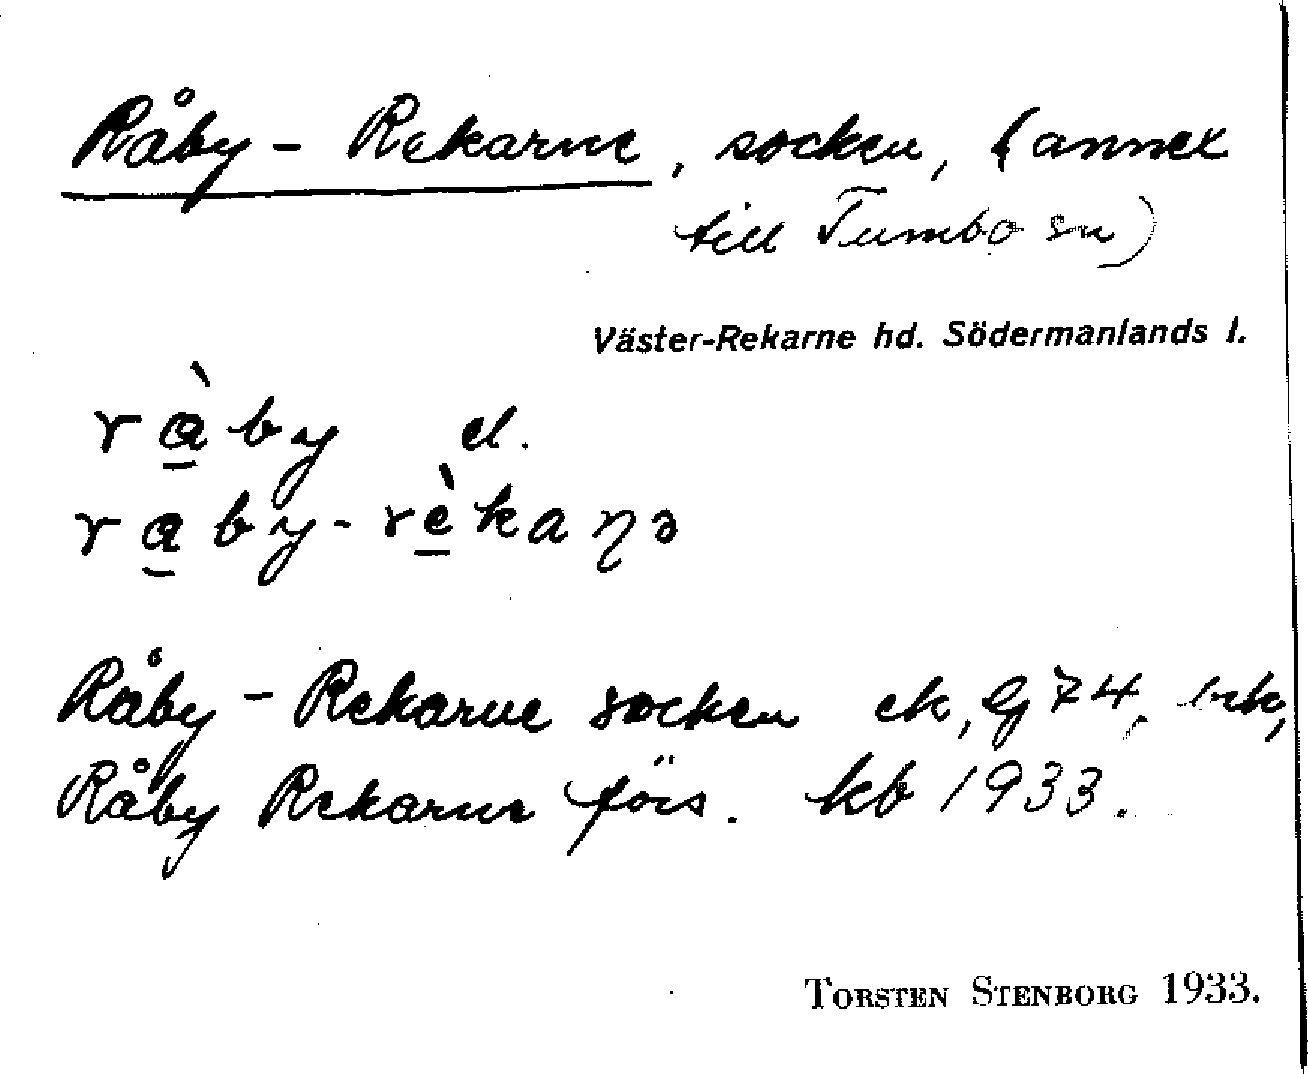 Råby-Rekarne, socken, (annex
till Tumbo sn)
Väster-Rekarne hd. Södermanlands l.
rà̱by el.
ra̱by-rè̱kaṇə
Råby-Rekarne socken ek, G74,
Råby Rekarne förs. kb 1933.
TORSTEN STENBORG 1933.